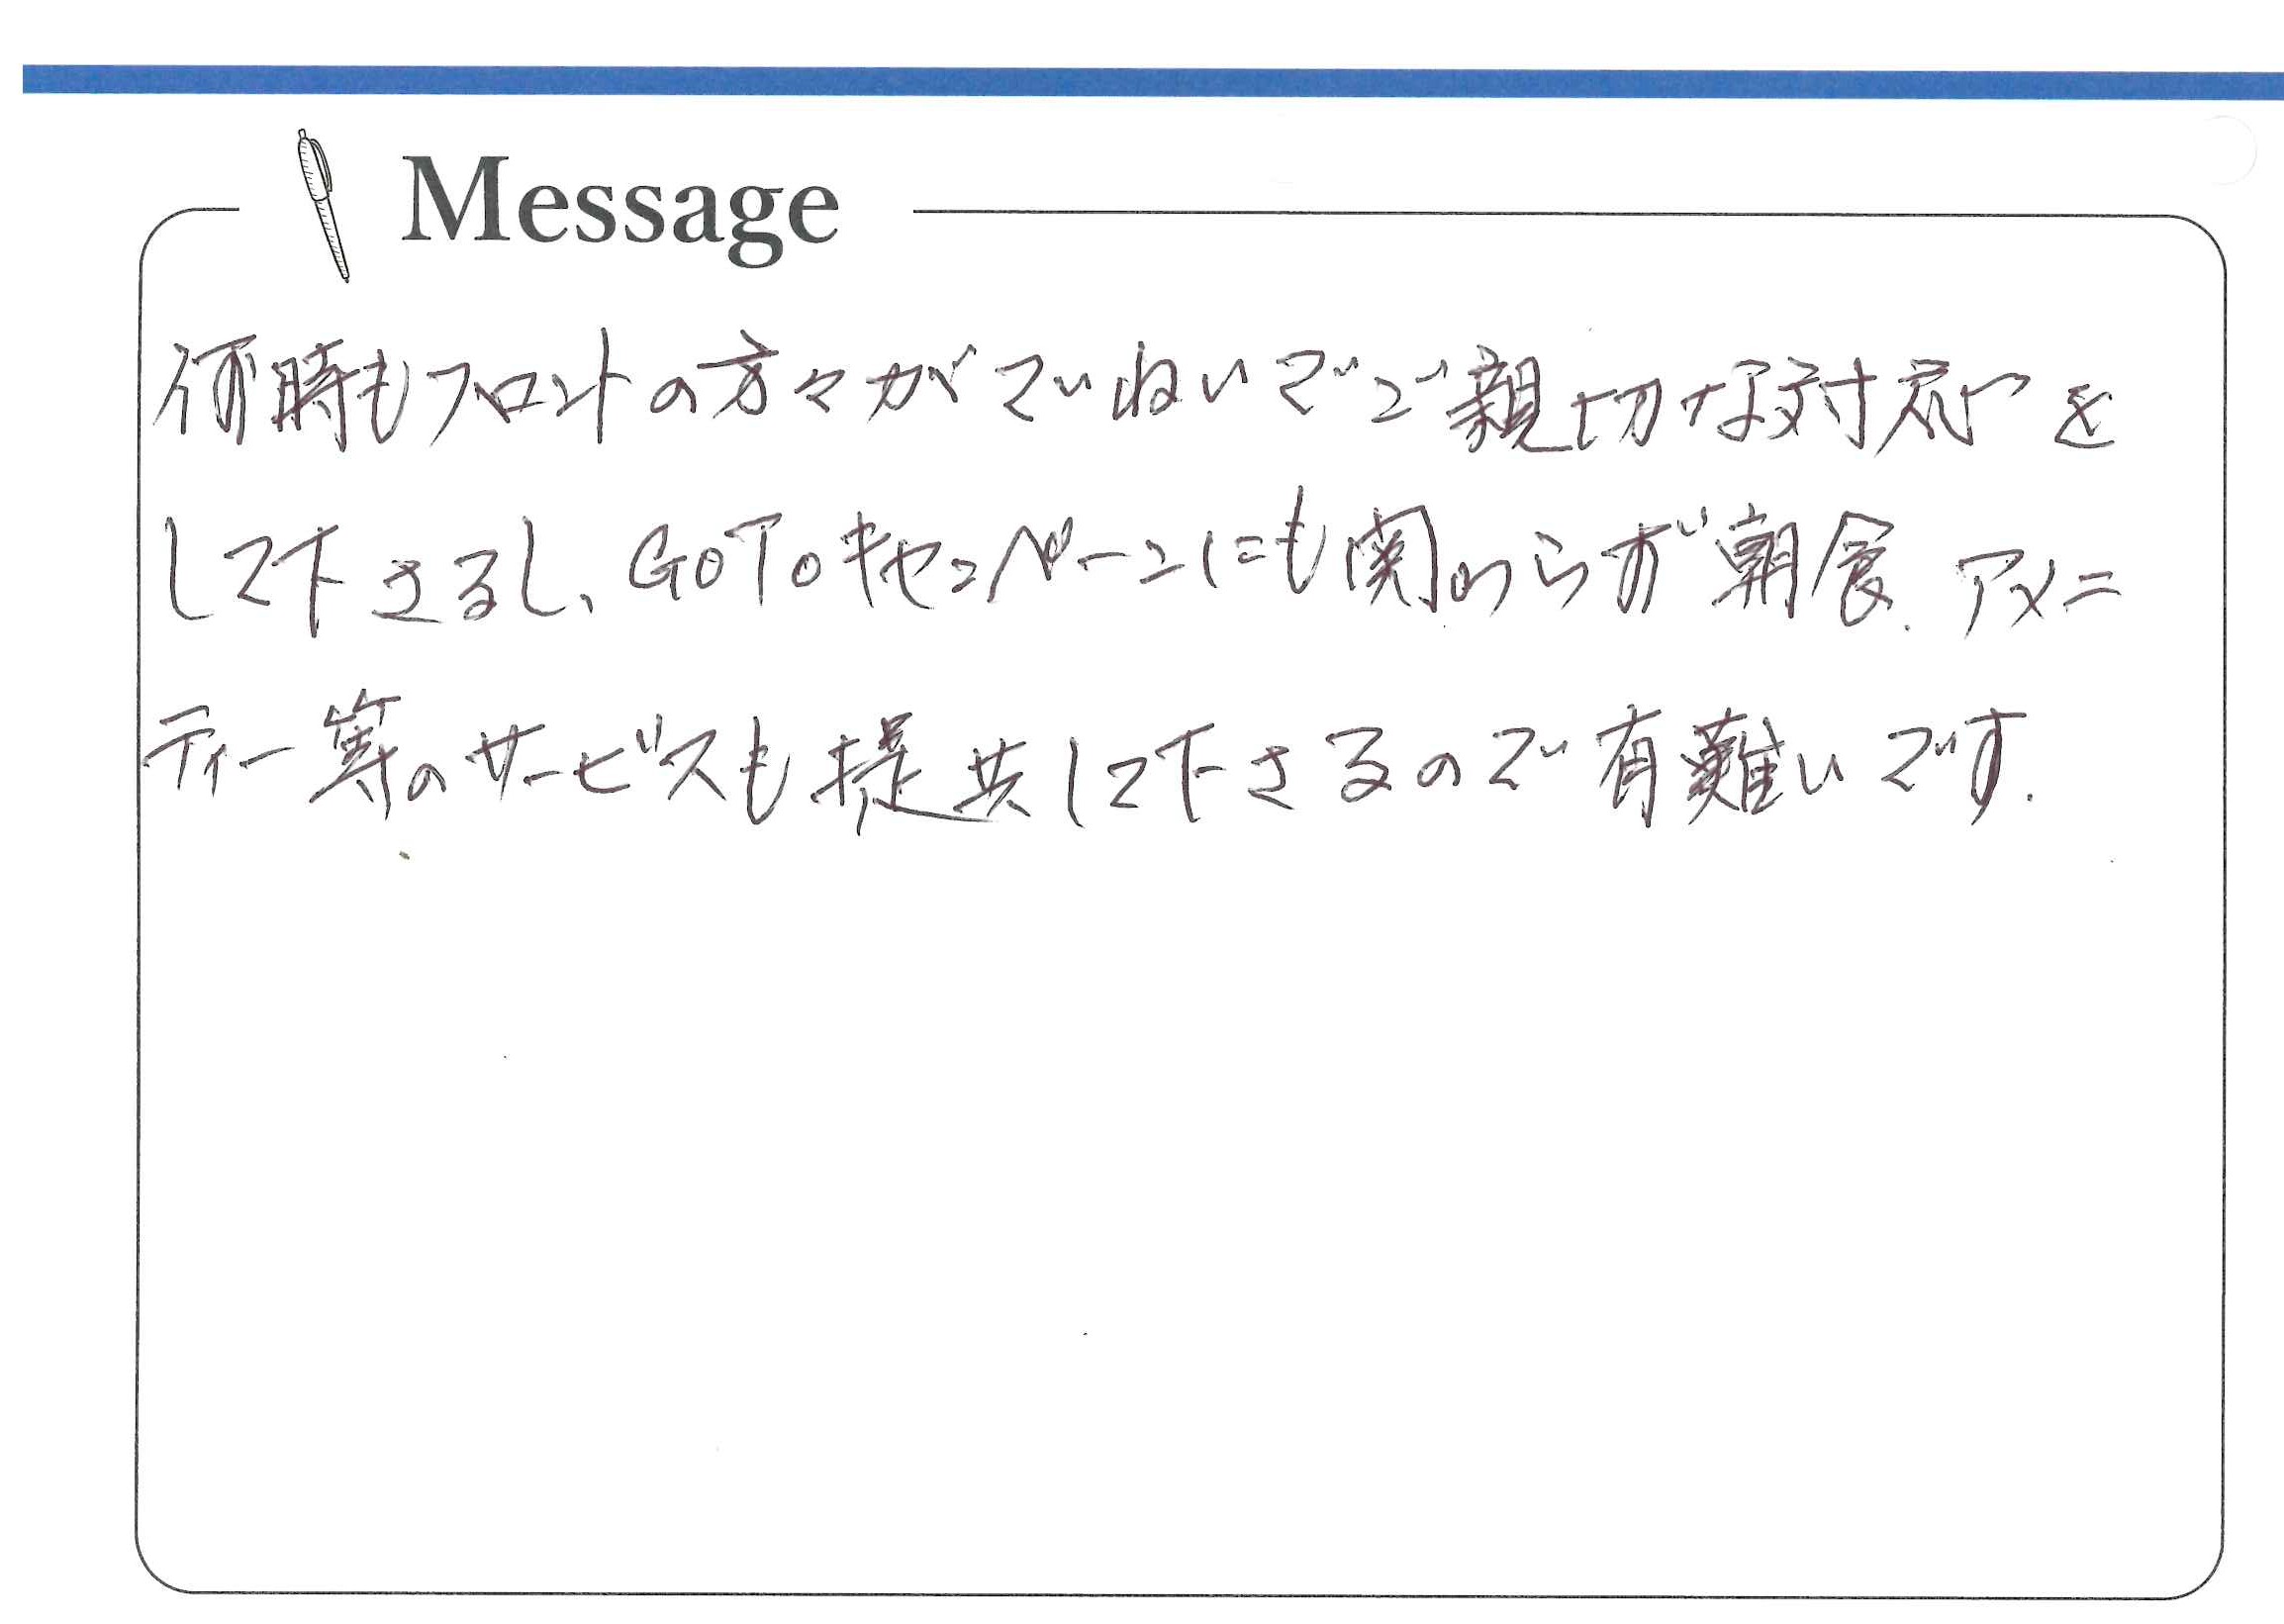 Message
何時もフロントの方々がていねいでご親切な対応を
して下さるし、GoToキャンペーンにも関わらず朝食、アメニ
ティー等のサービスも提供して下さるので有難いです。